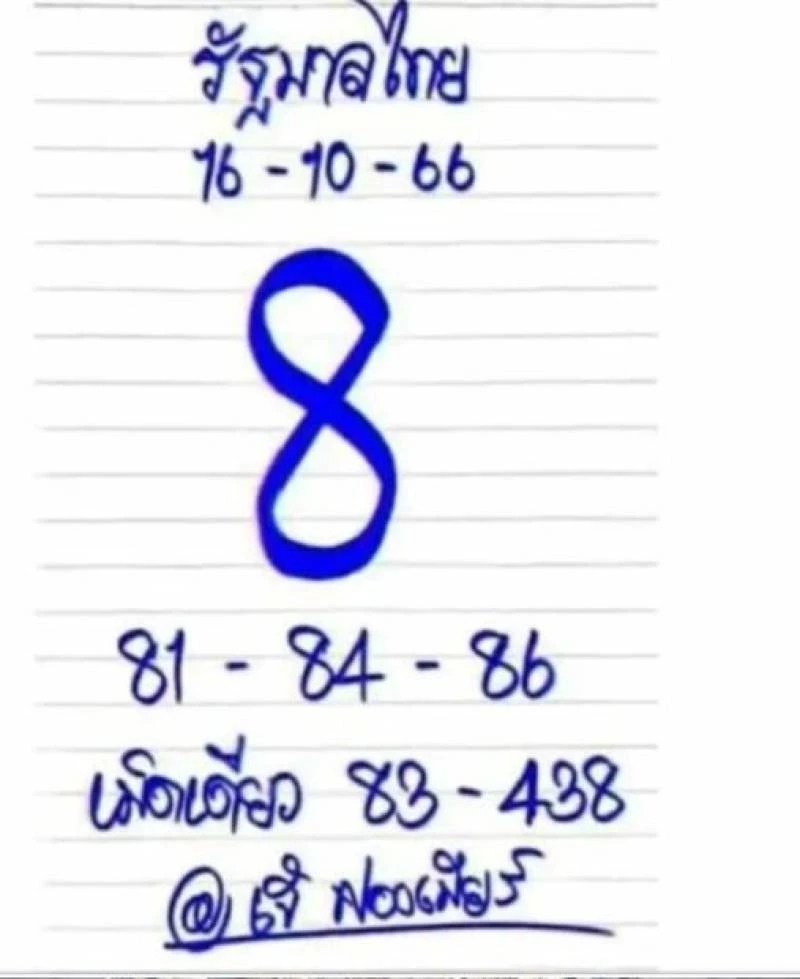 รัฐบาลไทย
16-10-66
8
81 - 84 - 86
เม็ดเดียว 83-438
@เจ๊ ฟองเบียร์